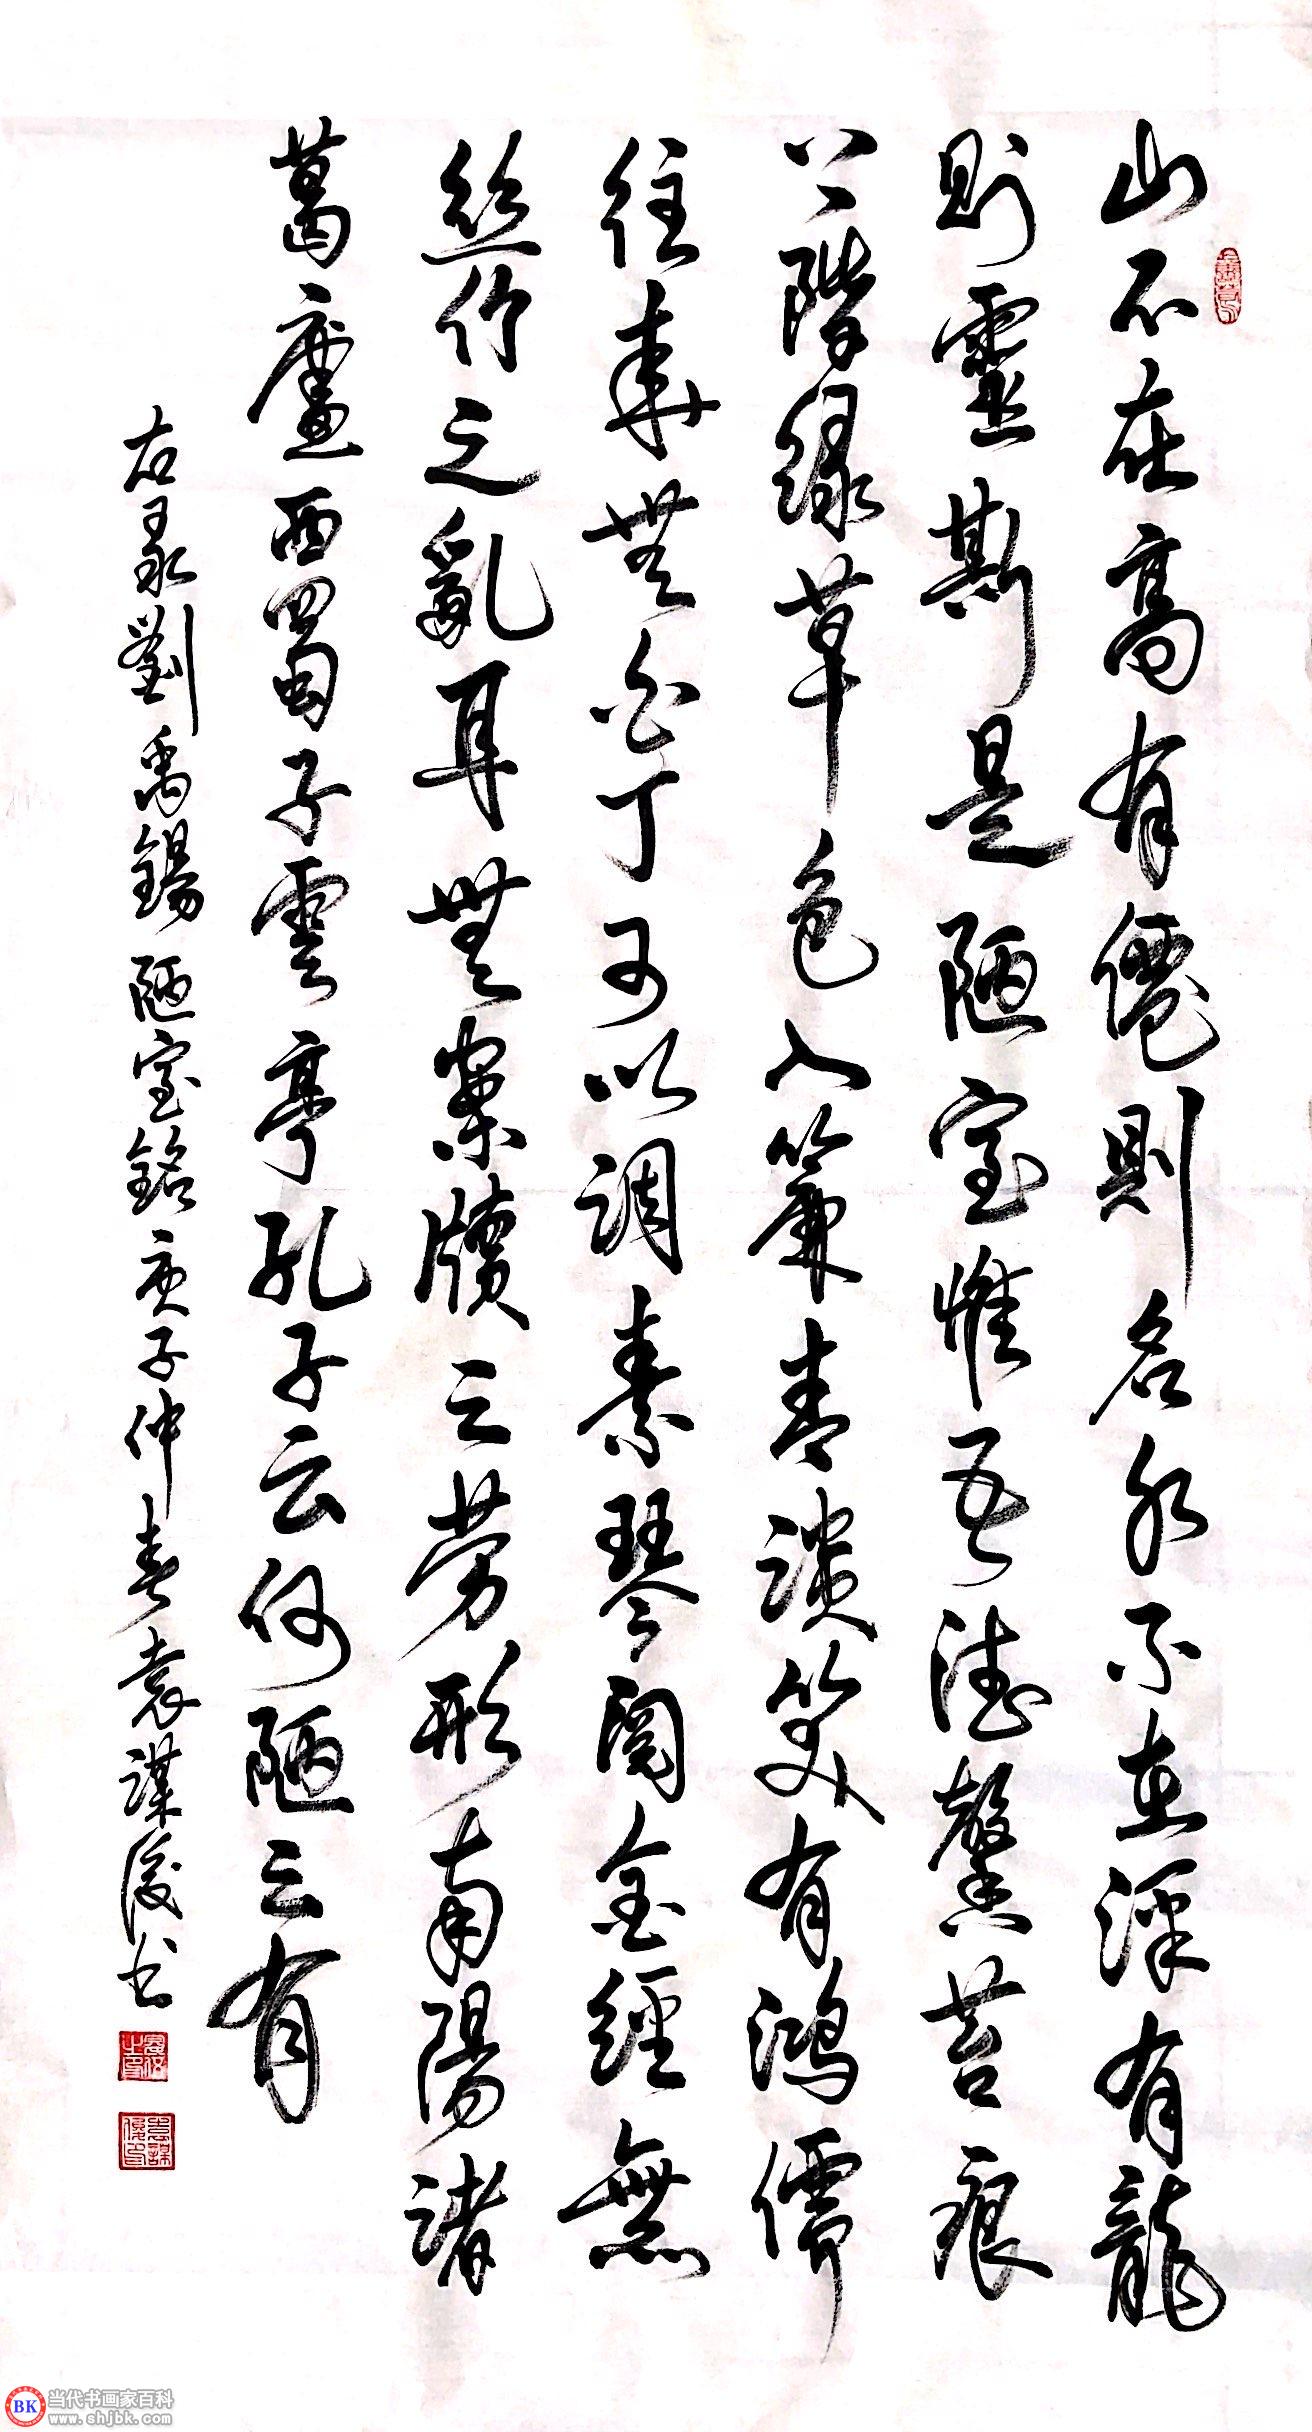 山不在高有僊則名水不在深有龍
則靈斯是陋室惟吾德馨苔痕
上階緑草色入簾青談笑有鴻儒
往来無白丁可以調素琴閱金經無
絲竹之亂耳無案牘之勞形南陽諸
葛廬西蜀子雲亭孔子云何陋之有
右录劉禹錫陋室銘庚子仲春袁謀俊书
袁謀俊印
BK
当代书画家百科
www.shjbk.com